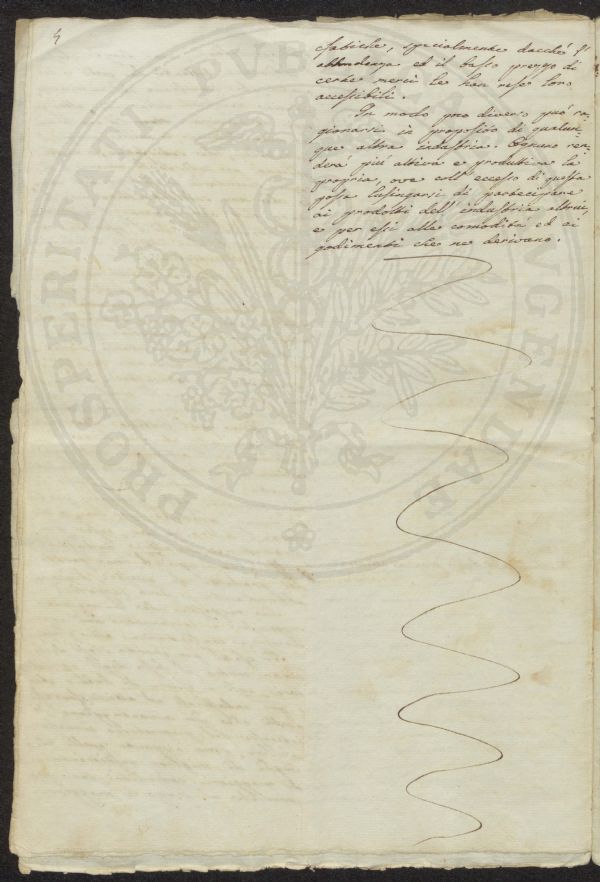 4
fabiche, specialmente dacché l'
abbondanza ed il basso prezzo di
certe merci le han rese loro
accessibili.
In modo non diverso può ra-
gionarsi in proposito di qualun-
que altra industria. Ognuno ren-
derà più attiva e produttiva la
propria, ove coll'eccesso di questa
possa lusingarsi di partecipare
ai prodotti dell'industria altrui,
e per essi alle comodità ed ai
godimenti che ne derivano.
PROSPERITATI PUBLICAE AUGENDAE